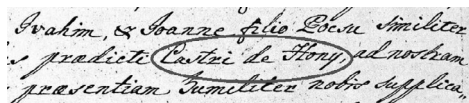 Ivahim, & Joanne filio Poesu similiter
s prædicti Castri de Hony, ad nostram
præsentiam humiliter nobis supplica=